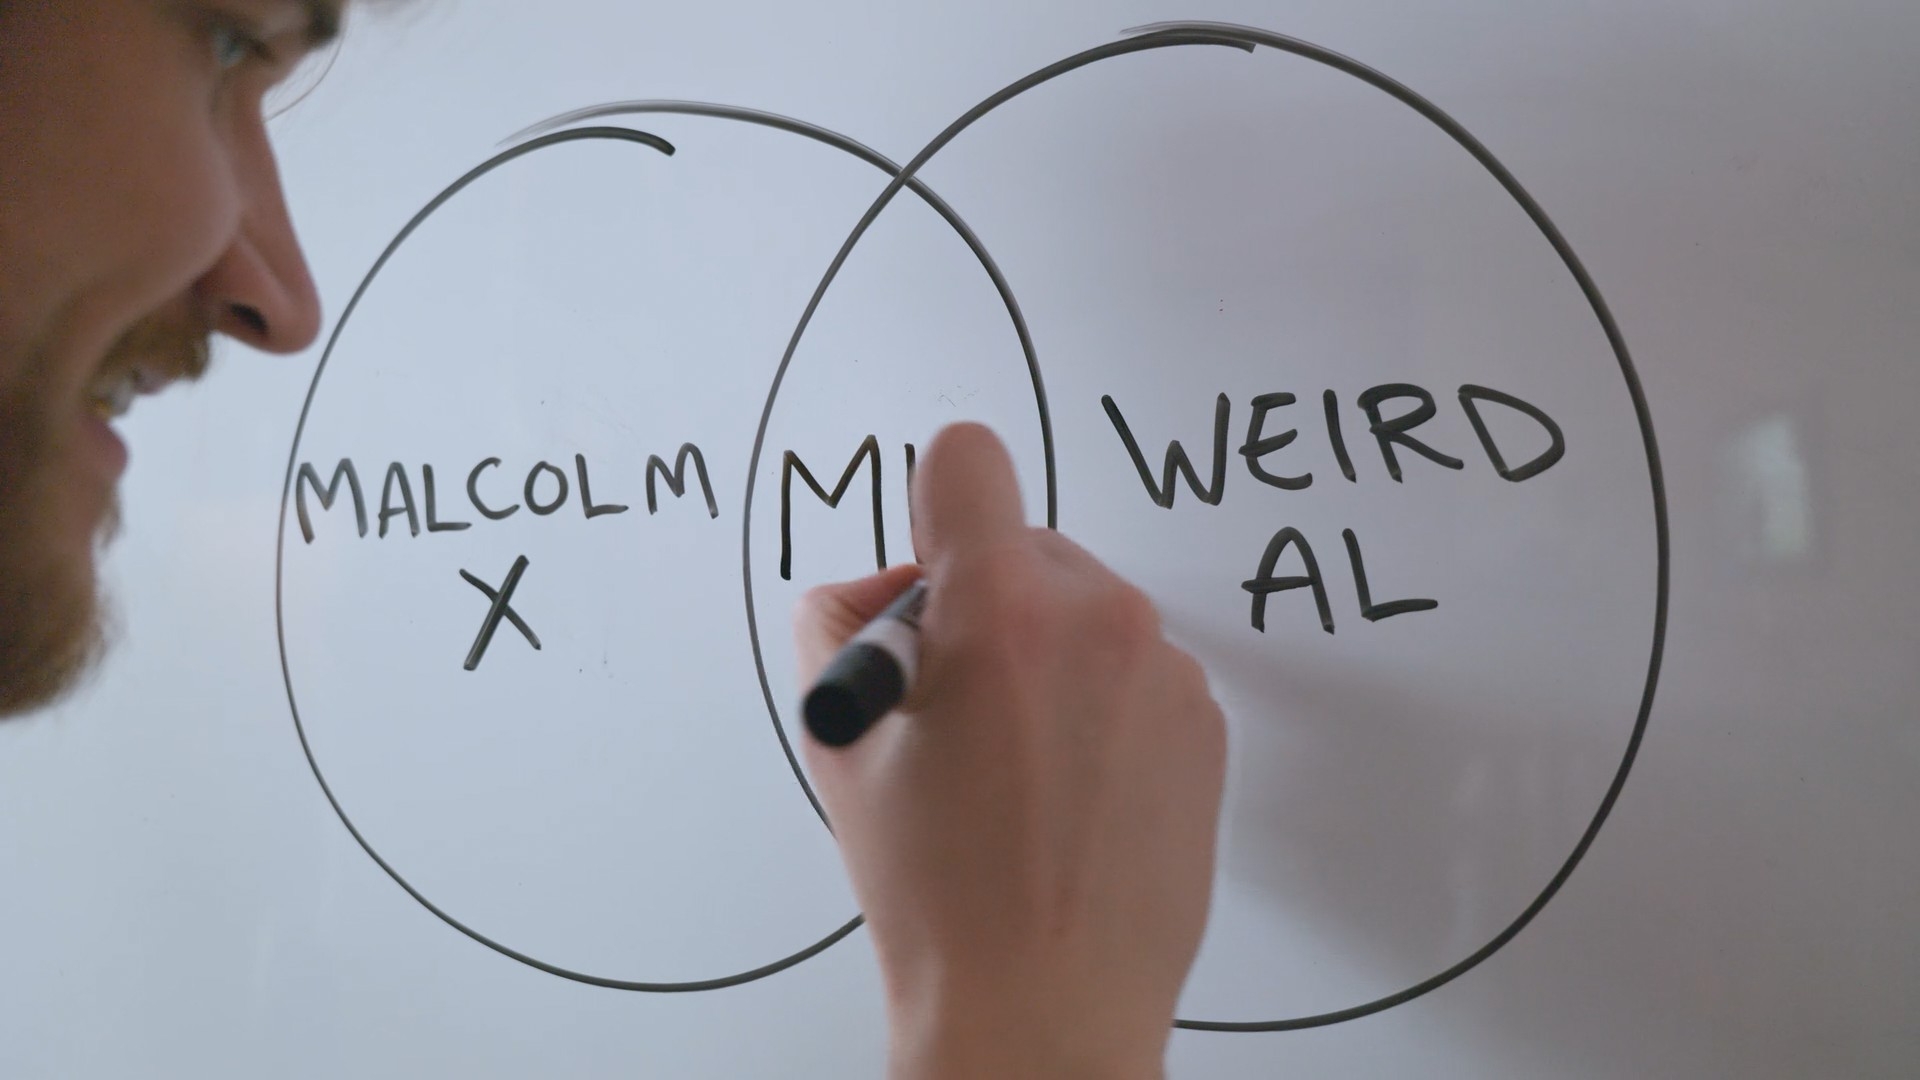 MALCOLM
X
WEIRD
AL